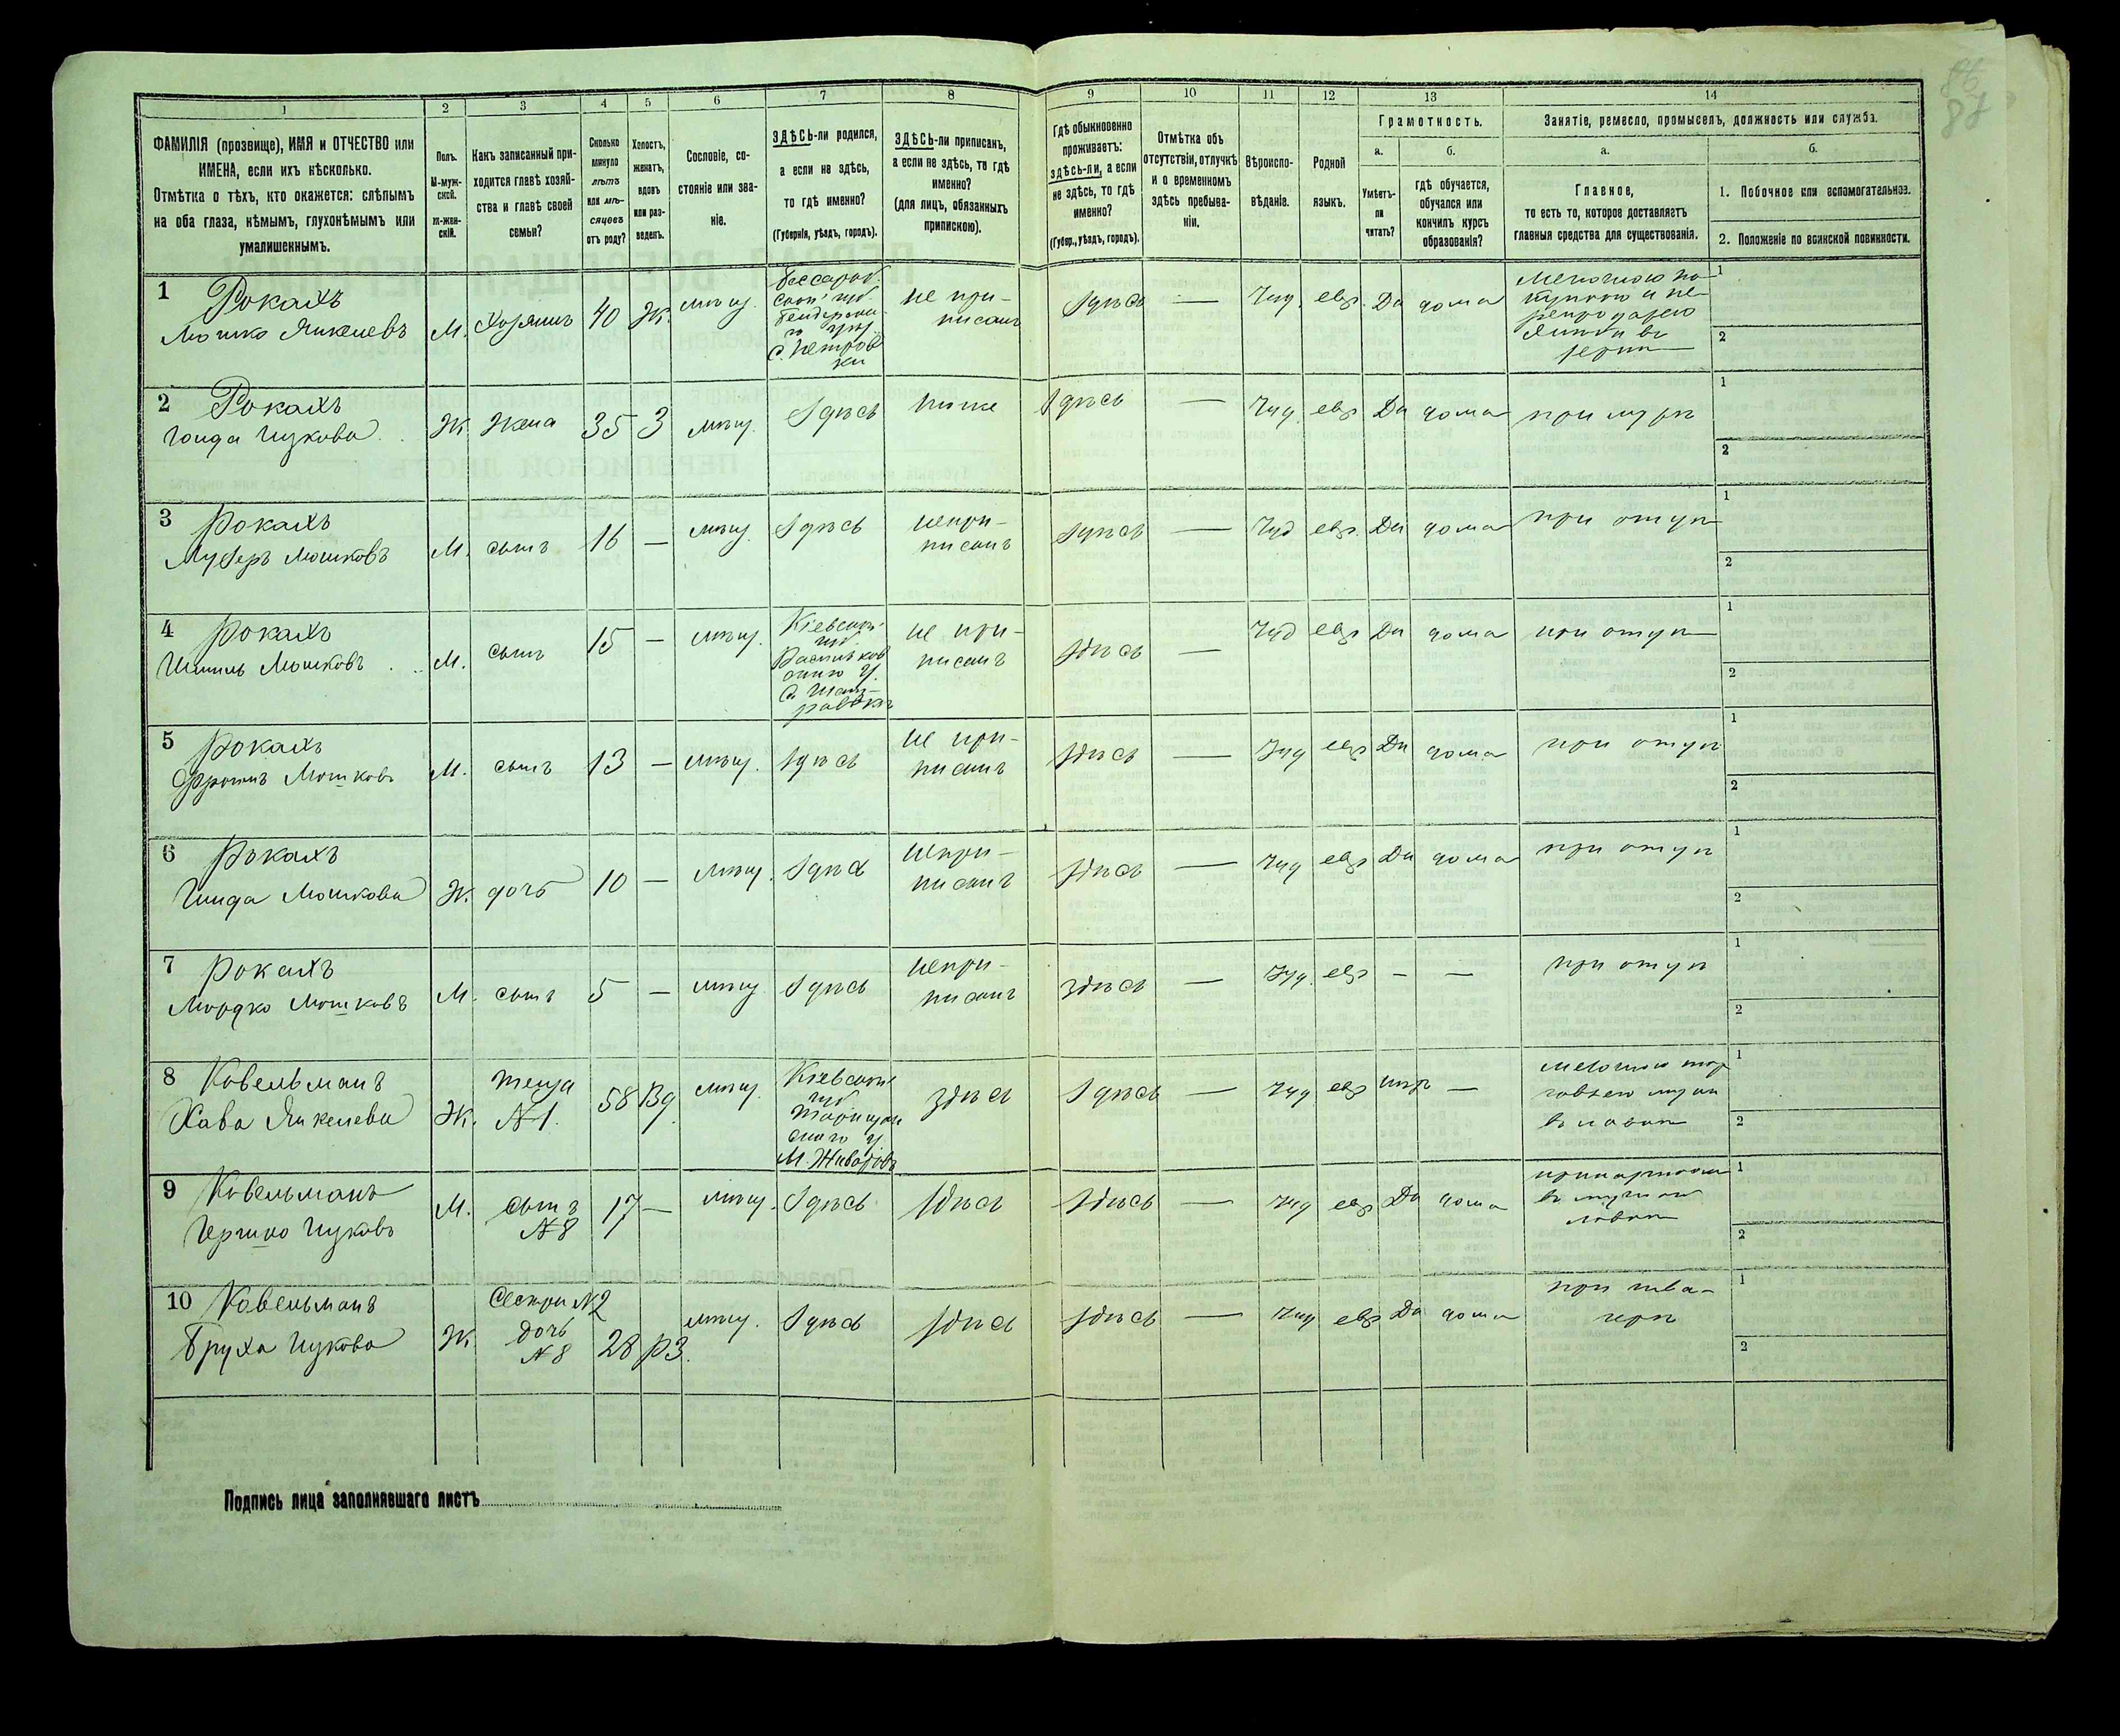 86
87
1 2 3 4 5 6 7 8 9 10 11 12 13 14
ФАМИЛІЯ (прозвище), ИМЯ и ОТЧЕСТВО или
ИМЕНА, если ихъ нѣсколько.
Отмѣтка о тѣхъ, кто окажется: слѣпымъ
на оба глаза, нѣмымъ, глухонѣмымъ или
умалишеннымъ.
Полъ.
М-муж-
ской.
ж-жен-
скій.
Какъ записанный при-
ходится главѣ хозяй-
ства и главѣ своей
семьи?
Сколько
минуло
лѣтъ
или мѣ-
сяцевъ
отъ роду?
Холостъ,
женатъ,
вдовъ
или раз-
веденъ.
Сословіе, со-
стояніе или зва-
ніе.
ЗДѢСЬ-ли родился,
а если не здѣсь,
то гдѣ именно?
(Губернія, уѣздъ, городъ).
ЗДѢСЬ-ли приписанъ,
а если не здѣсь, то гдѣ
именно?
(для лицъ, обязанныхъ
припискою).
Гдѣ обыкновенно
проживаетъ:
здѣсь-ли, а если
не здѣсь, то гдѣ
именно?
(Губер., уѣздъ, городъ).
Отмѣтка объ
отсутствіи, отлучкѣ
и о временномъ
здѣсь пребыва-
ніи.
Вѣроиспо-
вѣданіе.
Родной
языкъ.
Грамотность.
а.
Умѣетъ-
ли
читать?
б.
гдѣ обучается,
обучался или
кончилъ курсъ
образованія?
Занятіе, ремесло, промыселъ, должность или служба.
а.
Главное,
то есть то, которое доставляетъ
главныя средства для существованія.
б.
1. Побочное или вспомогательное.
2. Положеніе по воинской повинности.
1 Рокахъ
Мошко Янкелевъ
М. Хозяинъ 40 Ж. мѣщ.
Бессараб.
ской губ.
Бендерска-
го уѣз.
с. Петров
ки
не при-
писанъ
Здѣсь — Іуд. евр. Да дома
Мелочною по-
купкою и пе-
репродажею
1
2
2 Рокахъ
Ицкова
Ж. Жена 35 З мѣщ. Здѣсь тоже Здѣсь — Іуд. евр. Да дома при мужѣ
1
2
3 Рокахъ
Мошковъ
М. сынъ 16 — мѣщ. Здѣсь
непри-
писанъ
Здѣсь — Іуд евр. Да дома при отцѣ
1
2
4 Рокахъ
Мошковъ
М. сынъ 15 — мѣщ.
Кіевской
губ
с.
не при-
писанъ
Здѣсь — Іуд евр Да дома при отцѣ
1
2
5 Рокахъ
Фроимъ Мошковъ
М. сынъ 13 — мѣщ. Здѣсь
не при-
писанъ
Здѣсь — Іуд евр Да дома при отцѣ
1
2
6 Рокахъ
Мошкова
Ж. дочь 10 — мѣщ. Здѣсь
непри-
писанъ
Здѣсь — Іуд евр Да дома при отцѣ
1
2
7 Рокахъ
Мордко Мошковъ
М. сынъ 5 — мѣщ Здѣсь
непри-
писанъ
здѣсь — Іуд. евр — — при отцѣ
1
2
8 Ковельманъ
Хава Янкелева
Ж.
теща
№ 1.
58 Вд. мѣщ.
Кіевской
губ
Таращан
скаго у.
М. Животовъ
здѣсь Здѣсь — Іуд евр нѣтъ —
мелочною тор
1
2
9 Ковельманъ
Ицковъ
М.
сынъ
№ 8
17 — мѣщ. Здѣсь здѣсь Здѣсь — Іуд евр Да дома
1
2
10 Ковельманъ
Бруха Ицкова
Ж
Сестра № 2
дочь
№ 8
28 рз. мѣщ. Здѣсь здѣсь здѣсь — Іуд евр Да дома
при
1
2
Подпись лица заполнявшаго листъ